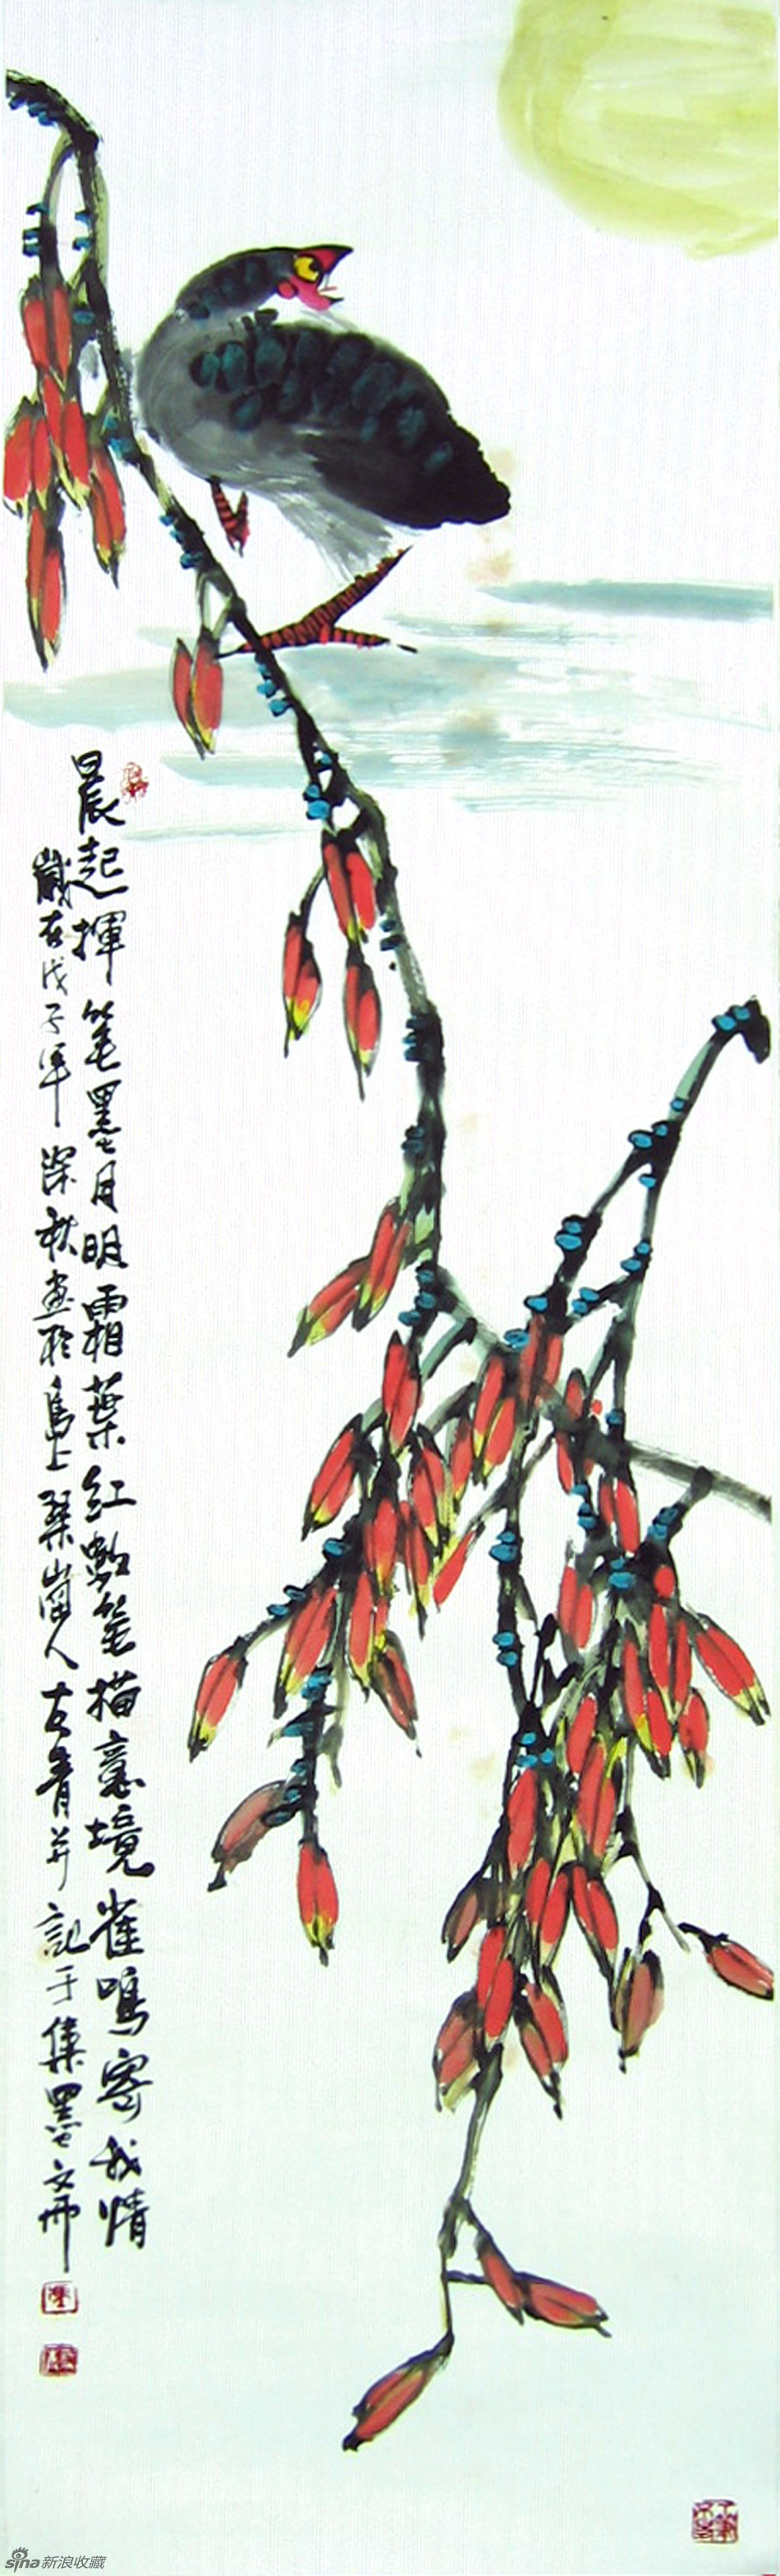 晨起揮笔墨月明霜葉红數笔描意境雀鳴寄我情
歲在戊子年深秋画於島上琹崗人古青并記于集墨文斋
sina新浪收藏